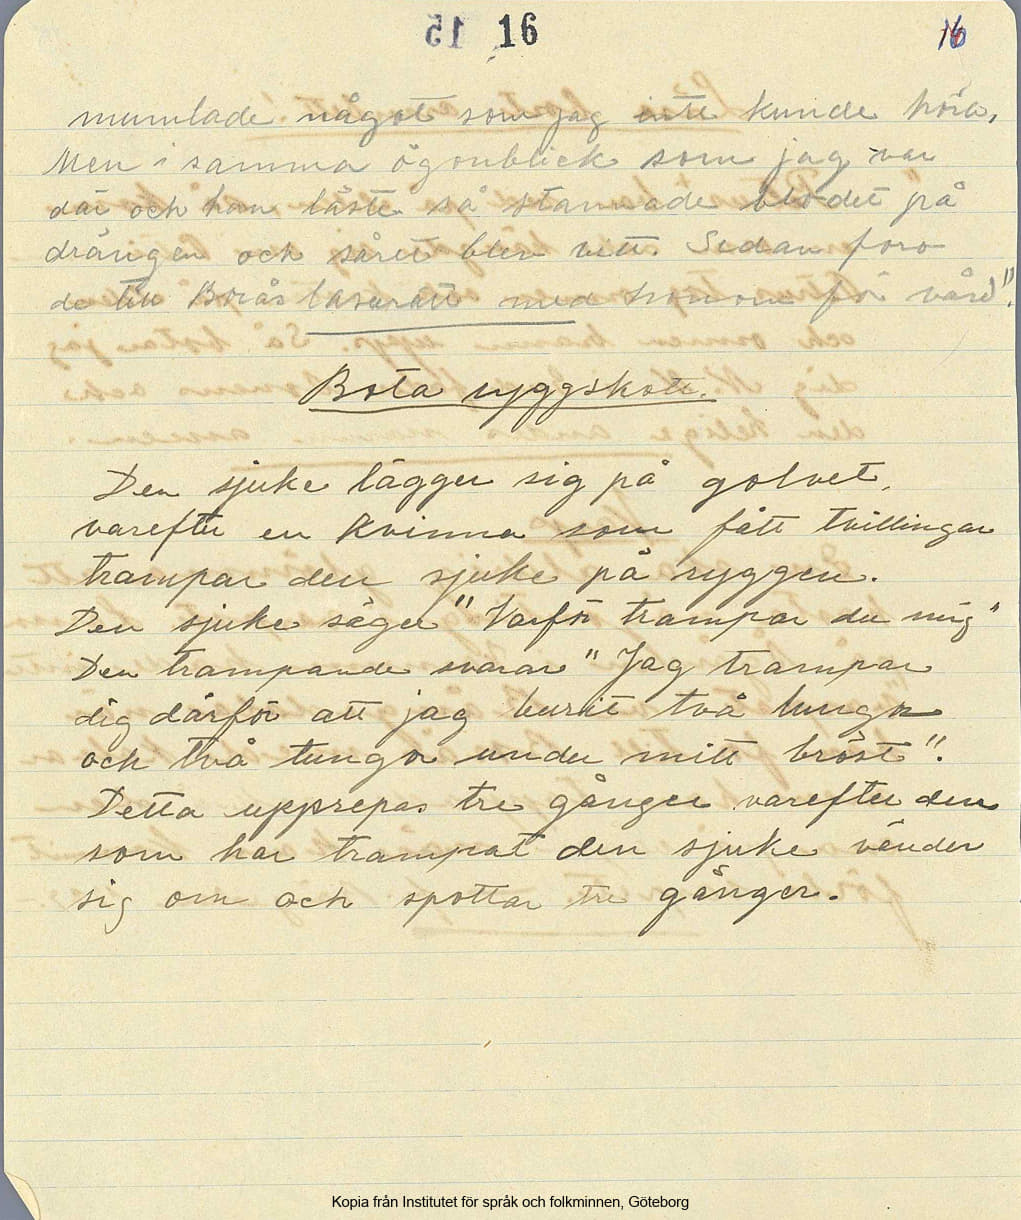 16
16
mumlade något som jag inte kunde höra,
Men i samma ögonblick som jag var
där och han läste så stannade blodet på
drängen och såret blev vitt. Sedan foro
de till Borås lasarett med honom för vård".
Bota ryggskott.
Den sjuke lägger sig på golvet,
varefter en kvinna som fått tvillingar
trampar den sjuke på ryggen.
Den sjuke säger "Varför trampar du mig"
Den trampande svarar "Jag trampar
dig därför att jag burit två lungor
och två tungor under mitt bröst".
Detta upprepas tre gånger varefter den
som har trampat den sjuke vänder
sig om och spottar tre gånger.
Kopia från Institutet för språk och folkminnen, Göteborg